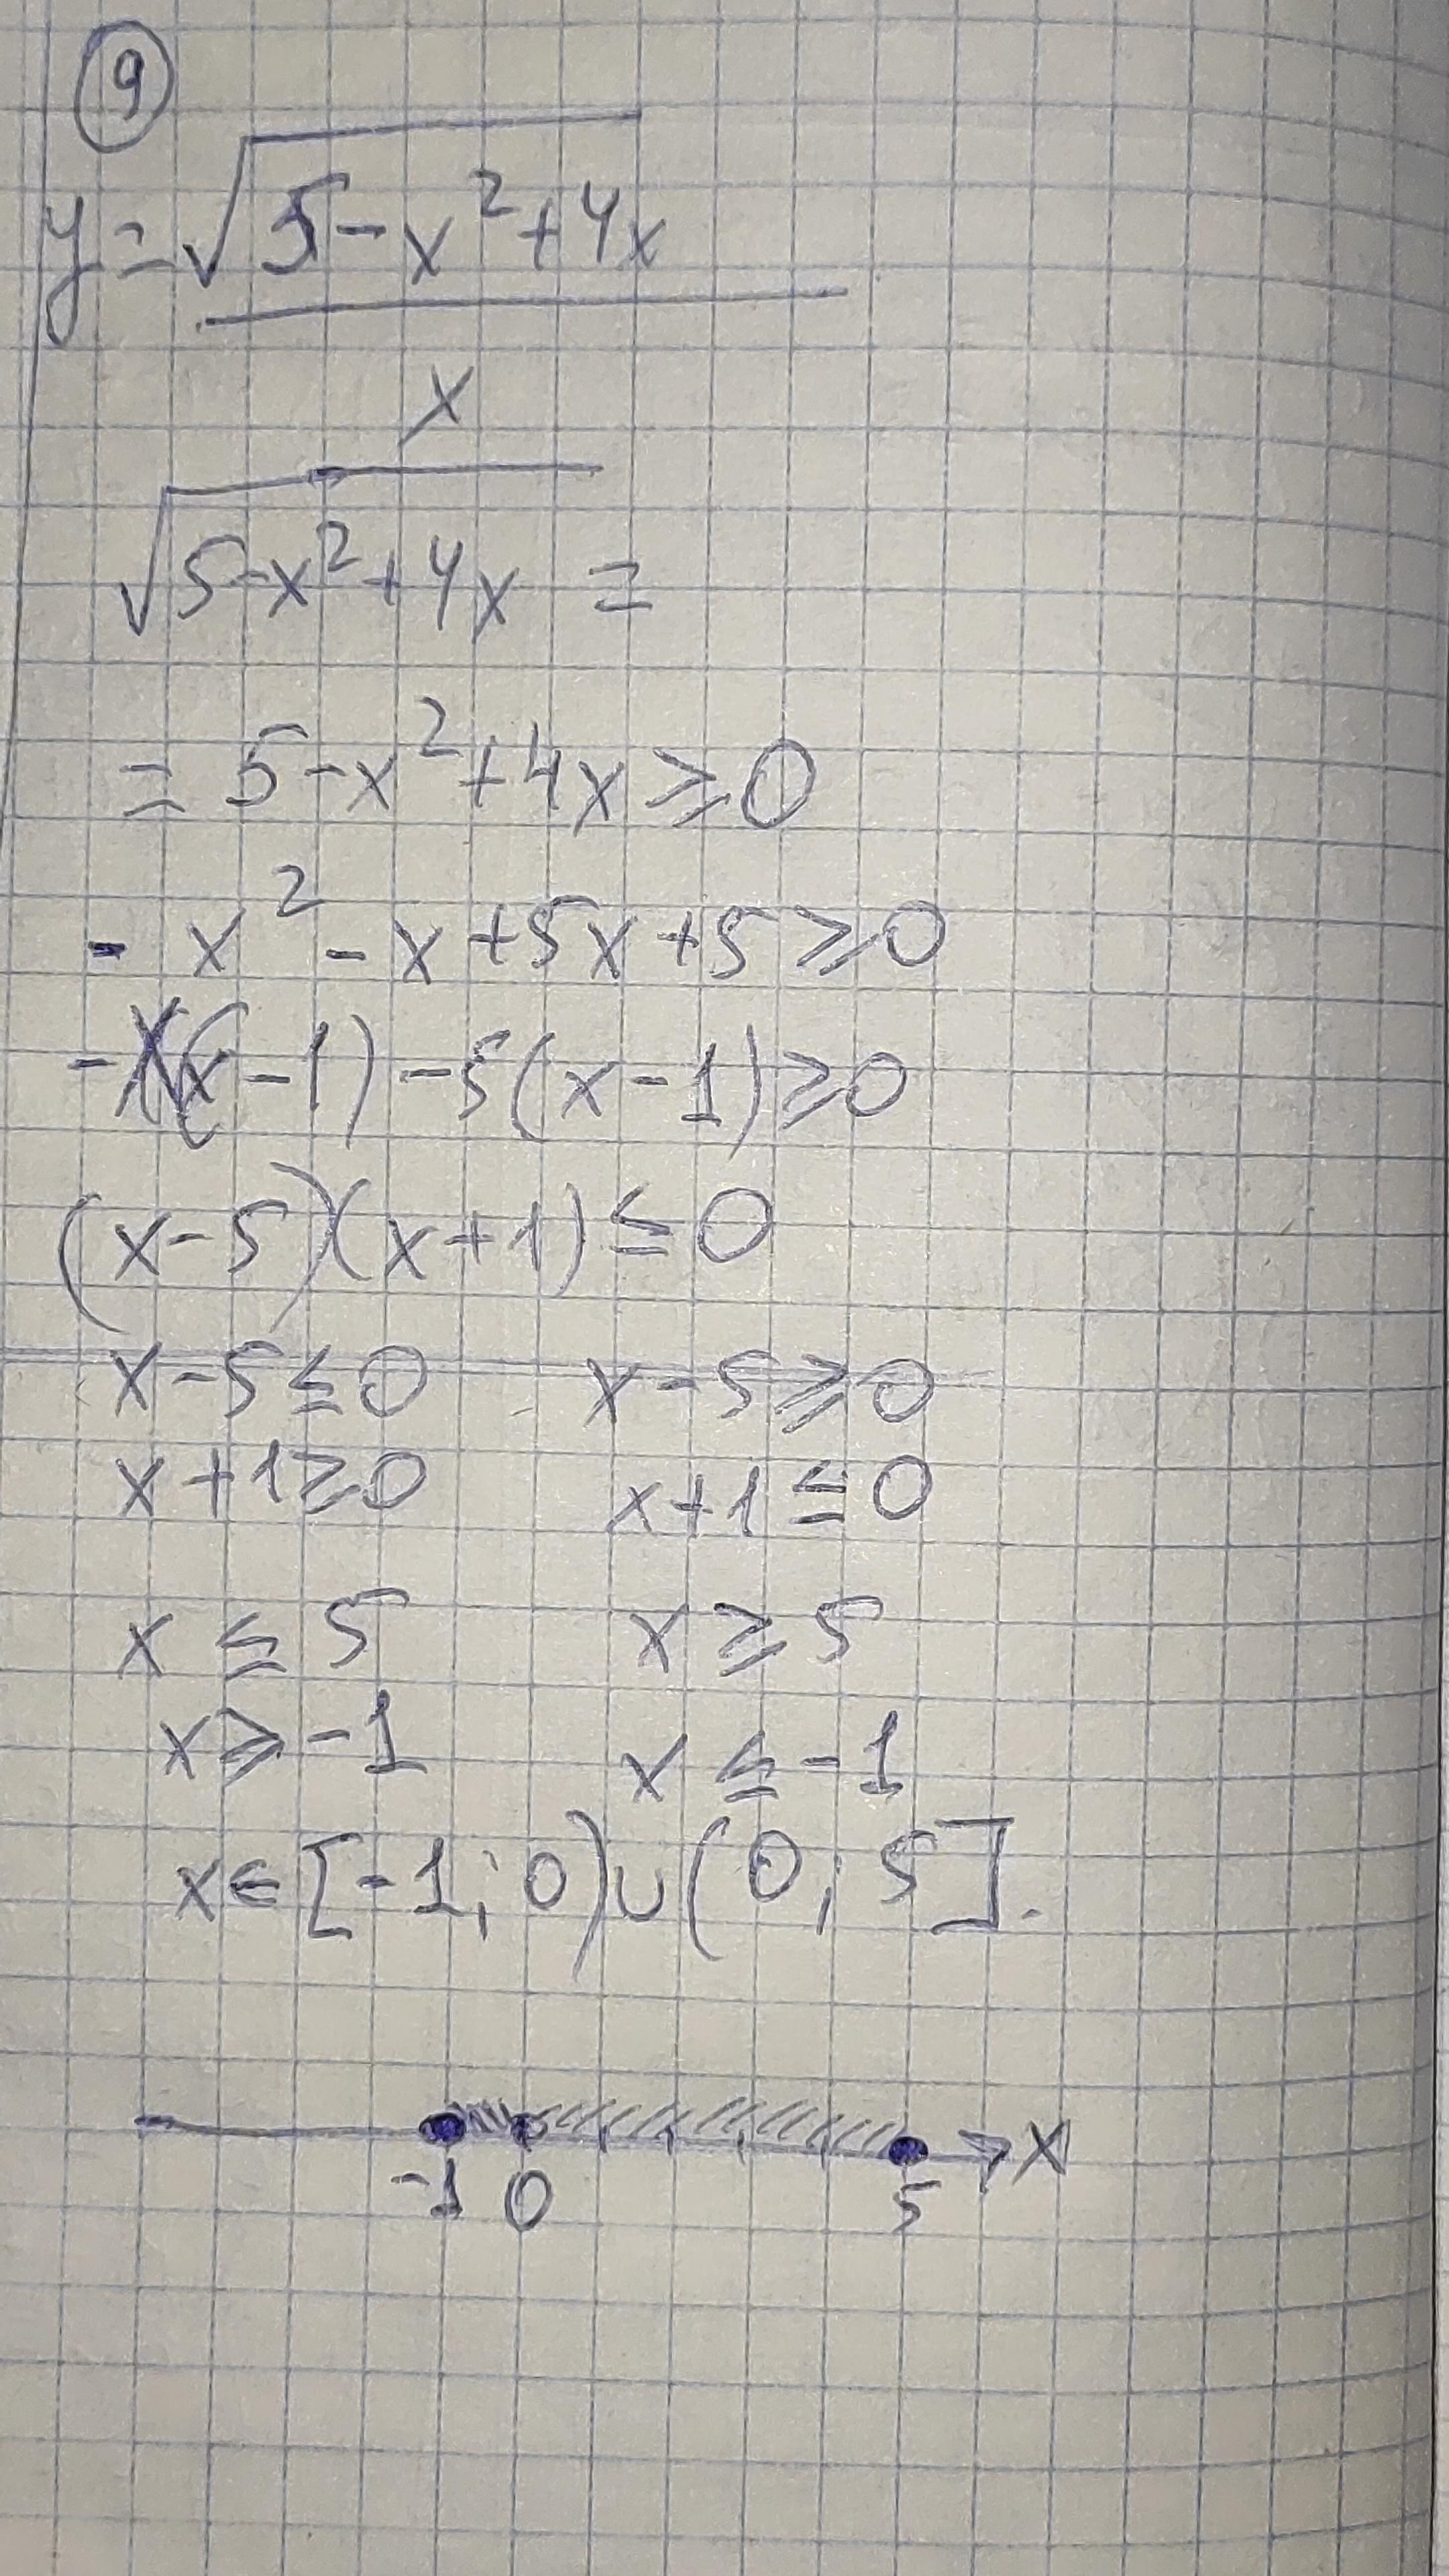 9
y = √(5 - x² + 4x)
x
√(5 - x² + 4x) =
= 5 - x² + 4x ⩾ 0
- x² - x + 5x + 5 ⩾ 0
- x(x - 1) - 5(x - 1) ⩾ 0
(x - 5)(x + 1) ≤ 0
x - 5 ≤ 0 x - 5 ⩾ 0
x + 1 ≥ 0 x + 1 ≤ 0
x ≤ 5 x ⩾ 5
x ⩾ -1 x ≤ -1
x ∈ [-1; 0) ∪ (0; 5].
x
-1 0 5